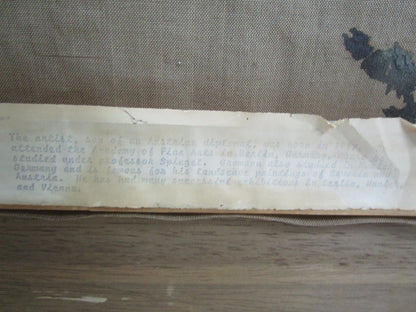 The artist, son of an Austrian diplomat, was born in
attended the Academy of Fine Arts in Berlin, Germany,
studied under professor Spiegel. Germany also studied in
Germany and is famous for his landscape paintings of
Austria. He has had many successful exhibitions in Berlin, Munich,
and Vienna.